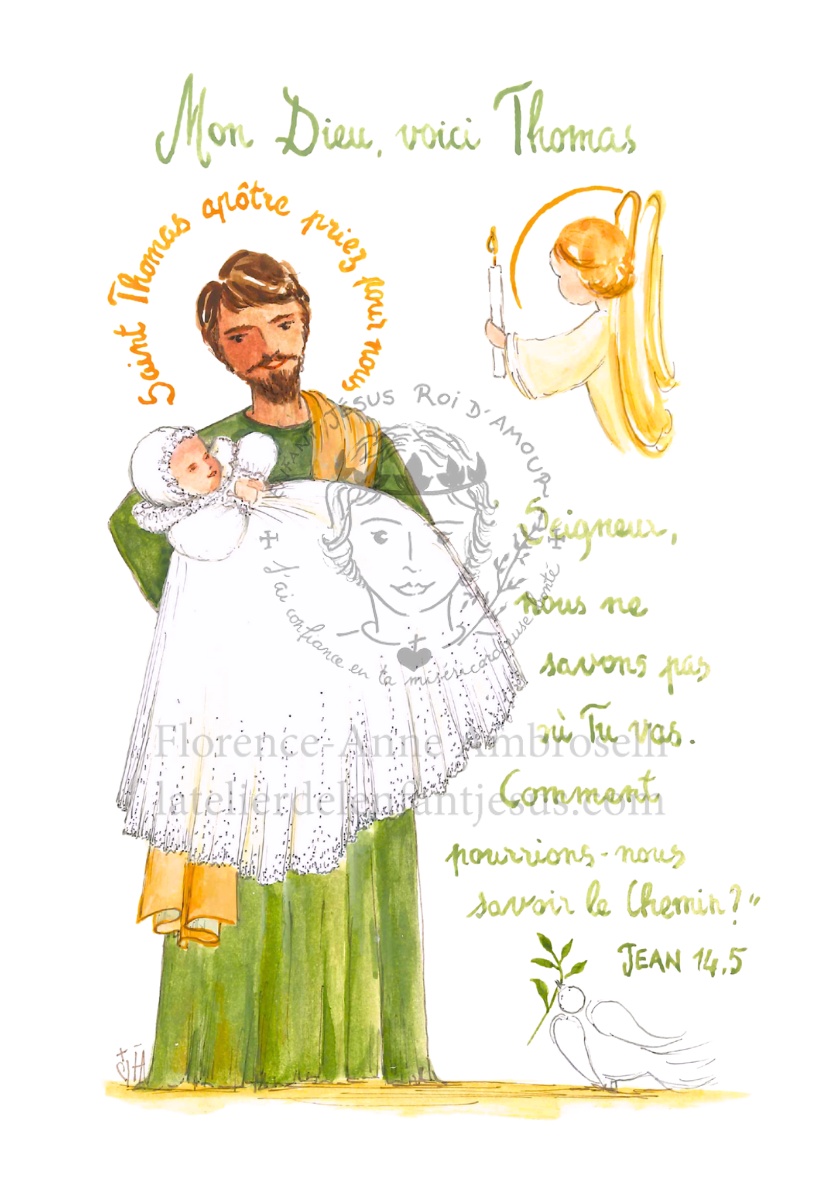 Mon Dieu, voici Thomas
Saint Thomas apôtre priez pour nous
JÉSUS ROI D'AMOUR
J'ai confiance en ta miséricordieuse bonté
Seigneur,
nous ne
savons pas
où Tu vas.
Florence-Anne Ambroselli
Comment
latelierdelenfantjesus.com
pourrions-nous
savoir le Chemin?"
JEAN 14,5